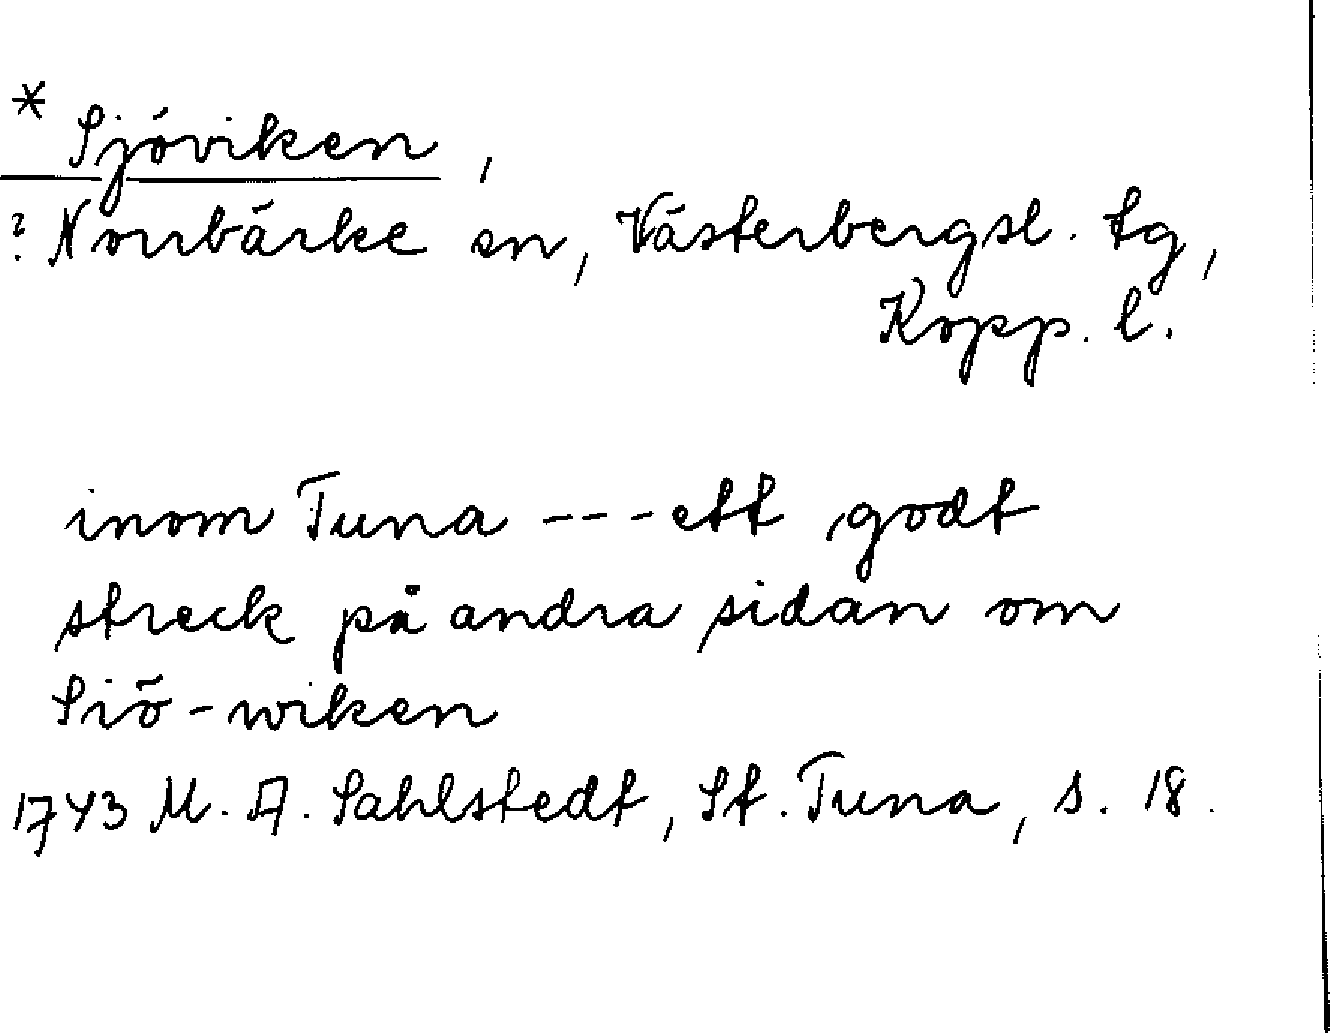 * Sjöviken,
? Norrbärke sn, Västerbergsl. tg,
Kopp. l.
inom Tuna --- ett godt
streck på andra sidan om
Siö-wiken
1743 M. A. Sahlstedt, St. Tuna, s. 18.